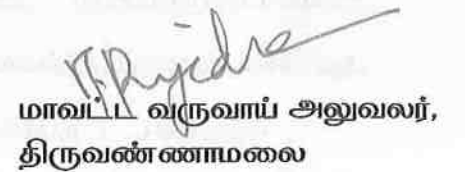 மாவட்ட வருவாய் அலுவலர்,
திருவண்ணாமலை